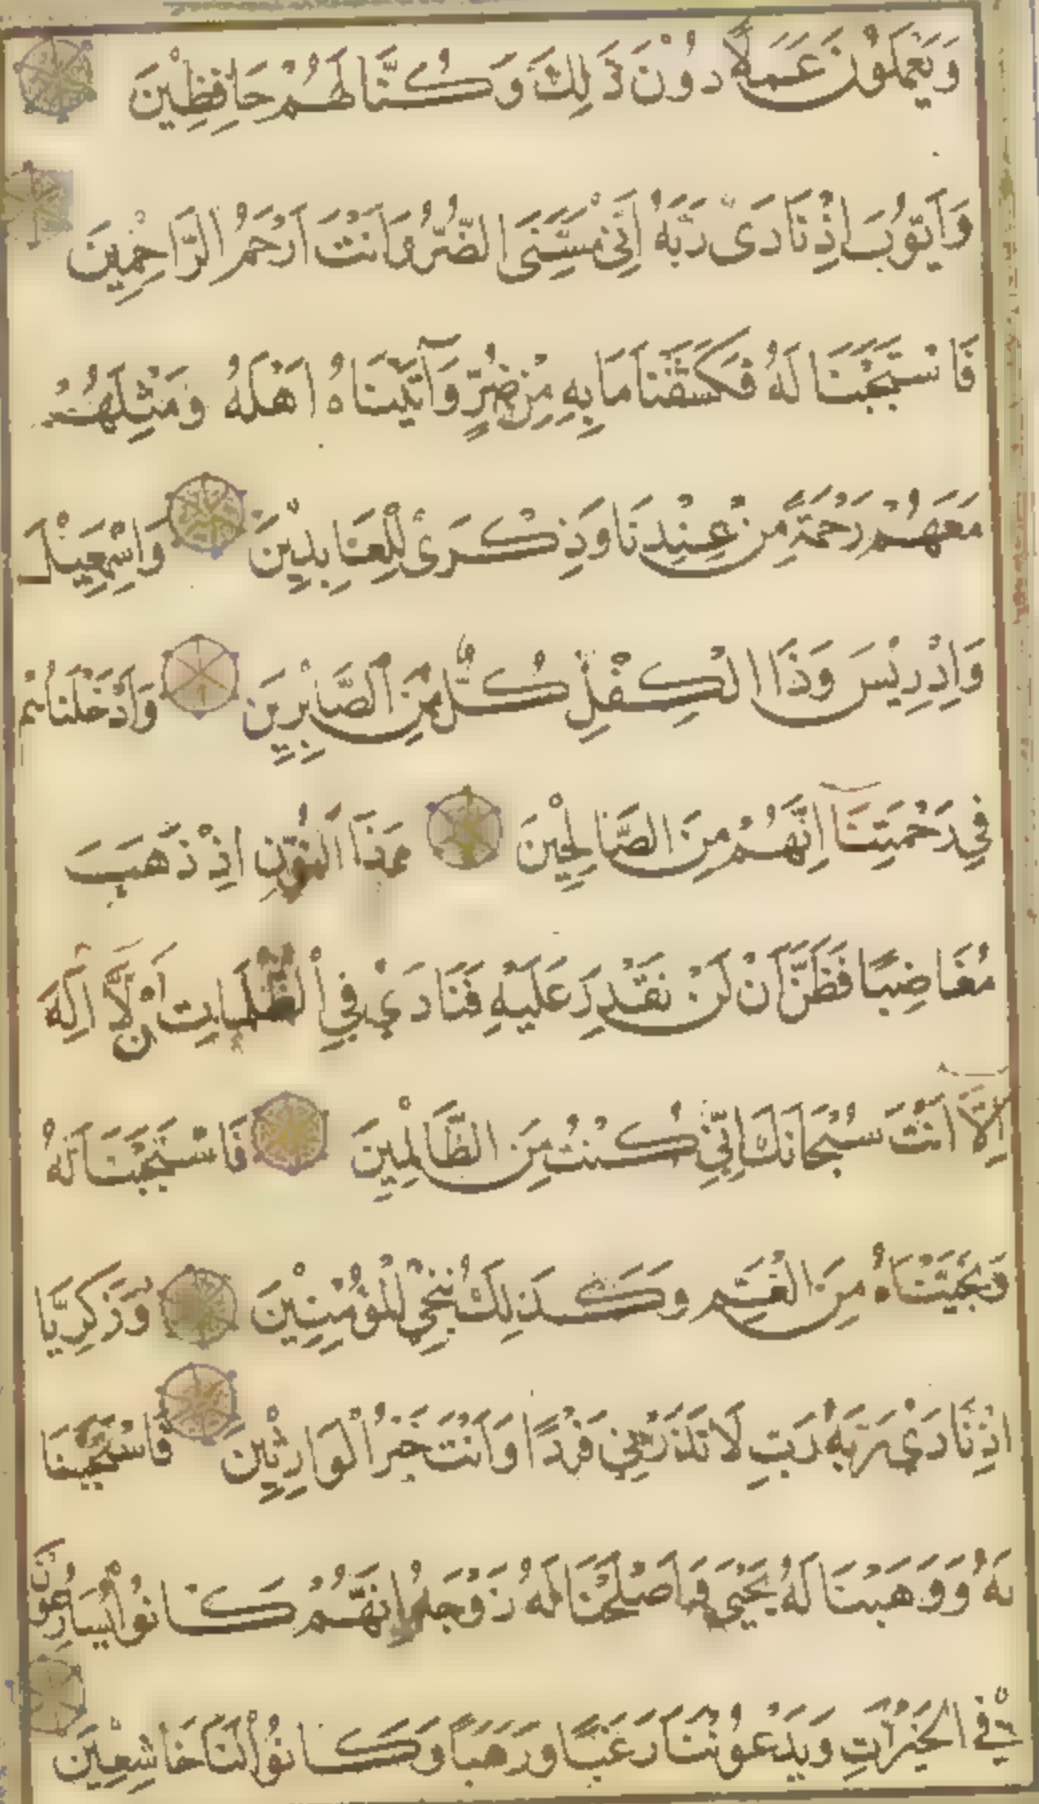 وَيَعْمَلُونَ عَمَلًا دُوْنَ ذَلِكَ وَكُنَّا لَهُمْ حَافِظِيْنَ
وَاَيُّوبَ اِذْ نَادَىٰ رَبَّهُ اَنِّىْ مَسَّنِىَ الضُّرُّ وَاَنْتَ اَرْحَمُ الرَّاحِمِيْنَ
فَاسْتَجَبْنَا لَهُ فَكَشَفْنَا مَا بِهِ مِنْ ضُرٍّ وَآتَيْنَاهُ اَهْلَهُ وَمِثْلَهُمْ
مَعَهُمْ رَحْمَةً مِنْ عِنْدِنَا وَذِكْرَىٰ لِلْعَابِدِيْنَ وَاِسْمٰعِيْلَ
وَاِدْرِيْسَ وَذَا الْكِفْلِ كُلٌّ مِنَ الصَّابِرِيْنَ وَاَدْخَلْنَاهُمْ
فِي رَحْمَتِنَا اِنَّهُمْ مِنَ الصَّالِحِيْنَ وَذَا النُّوْنِ اِذْ ذَهَبَ
مُغَاضِبًا فَظَنَّ اَنْ لَنْ نَقْدِرَ عَلَيْهِ فَنَادَىٰ فِي الظُّلُمَاتِ اَنْ لَا اِلَهَ
اِلَّا اَنْتَ سُبْحَانَكَ اِنِّي كُنْتُ مِنَ الظَّالِمِيْنَ فَاسْتَجَبْنَا لَهُ
وَنَجَّيْنَاهُ مِنَ الْغَمِّ وَكَذَلِكَ نُنْجِي الْمُؤْمِنِيْنَ وَزَكَرِيَّا
اِذْ نَادَىٰ رَبَّهُ رَبِّ لَا تَذَرْنِي فَرْدًا وَاَنْتَ خَيْرُ الْوَارِثِيْنَ فَاسْتَجَبْنَا
لَهُ وَوَهَبْنَا لَهُ يَحْيَىٰ وَاَصْلَحْنَا لَهُ زَوْجَهُ اِنَّهُمْ كَانُوا يُسَارِعُوْنَ
فِي الْخَيْرَاتِ وَيَدْعُوْنَنَا رَغَبًا وَرَهَبًا وَكَانُوْا لَنَا خَاشِعِيْنَ